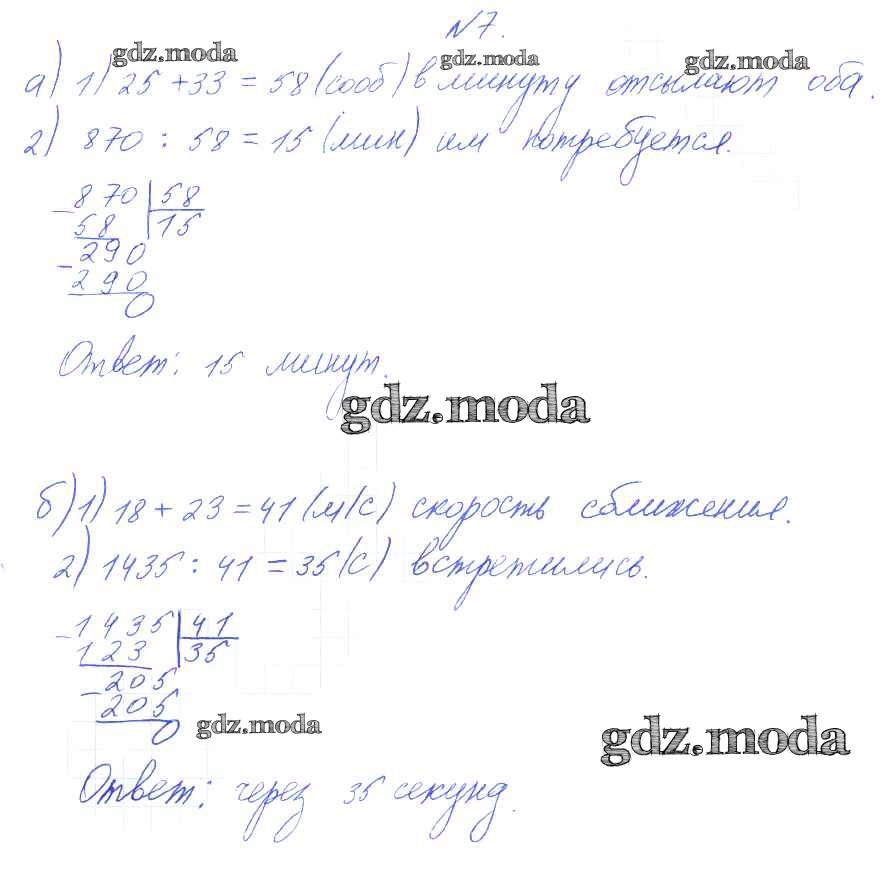 №7.
gdz.moda gdz.moda gdz.moda
а) 1) 25 + 33 = 58 (сооб) в минуту отсылают оба.
2) 870 : 58 = 15 (мин) им потребуется.
- 870 | 58
58 | 15
- 290
290
0
Ответ: 15 минут.
gdz.moda
б) 1) 18 + 23 = 41 (м/с) скорость сближения.
2) 1435 : 41 = 35 (с) встретились.
- 1435 | 41
123 | 35
- 205
205
0
gdz.moda gdz.moda
Ответ: через 35 секунд.